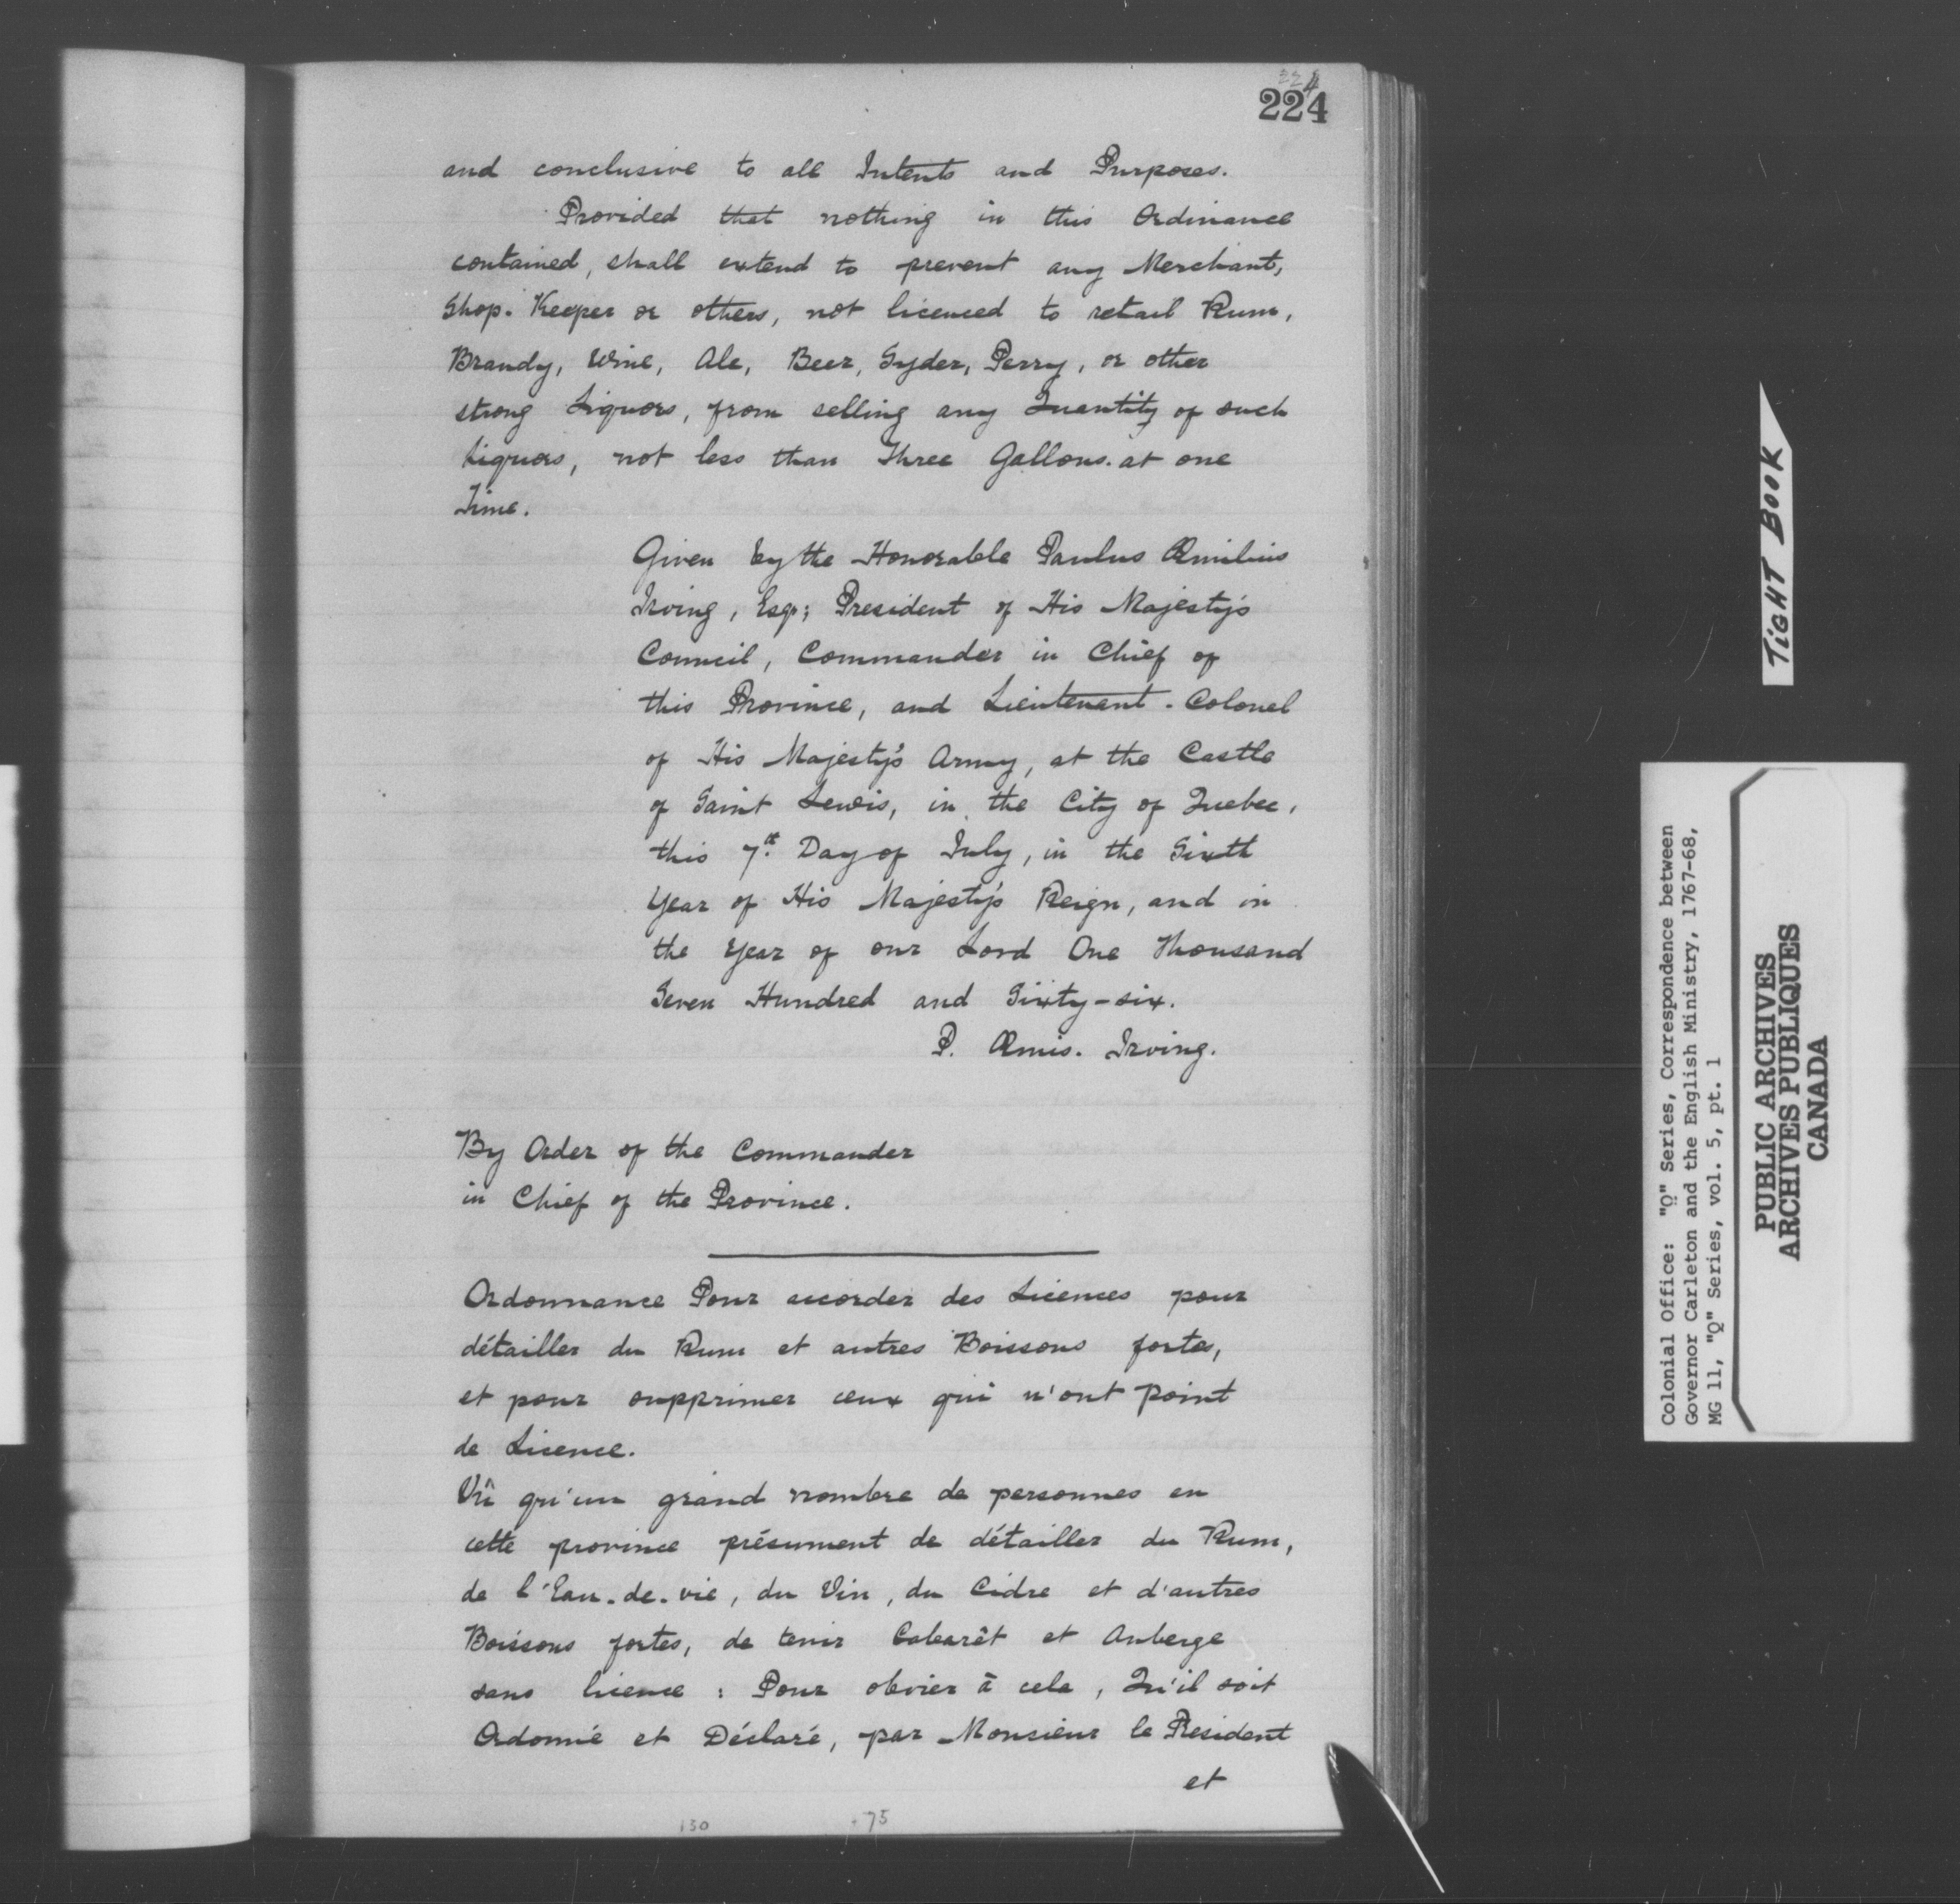 224
224
and conclusive to all Intents and Purposes.
Provided that nothing in this Ordinance
contained, shall extend to prevent any Merchant,
Shop-Keeper or others, not licenced to retail Rum,
Brandy, Wine, Ale, Beer, Syder, Perry, or other
strong Liquors, from selling any Quantity of such
Liquors, not less than Three Gallons. at one
Time.
Given by the Honorable Paulus Æmilius
Irving, Esqr; President of His Majesty's
Council, Commander in Chief of
this Province, and Lieutenant-Colonel
of His Majesty's Army, at the Castle
of Saint Lewis, in the City of Quebec,
this 7th Day of July, in the Sixth
Year of His Majesty's Reign, and in
the Year of our Lord One Thousand
Seven Hundred and Sixty-six.
P. Æmis. Irving.
By Order of the Commander
in Chief of the Province.
Ordonnance Pour accorder des Licences pour
détailler du Rum et autres Boissons fortes,
et pour supprimer ceux qui n'ont point
de Licence.
Vû qu'un grand nombre de personnes en
cette province présument de détailler du Rum,
de l'Eau-de-vie, du Vin, du Cidre et d'autres
Boissons fortes, de tenir Cabarêt et Auberge
sans licence : Pour obvier à cela, Qu'il soit
Ordonné et Déclaré, par Monsieur le President
et
130 +75
TIGHT BOOK
Colonial Office: "Q" Series, Correspondence between
Governor Carleton and the English Ministry, 1767-68,
MG 11, "Q" Series, vol. 5, pt. 1
PUBLIC ARCHIVES
ARCHIVES PUBLIQUES
CANADA